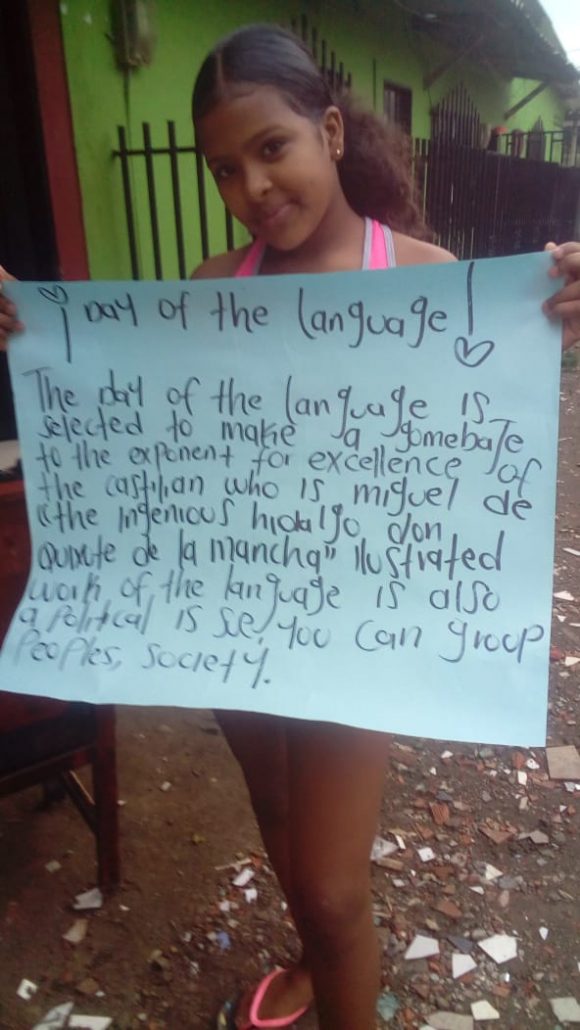 ¡Day of the language!
The Day of the language is
selected to make a gomebaje
to the exponent for excellence of
the castilian who is miguel de
"the ingenious hidalgo don
quixote de la mancha" ilustrated
work of the language is also
a political is see, you can group
Peoples, society.